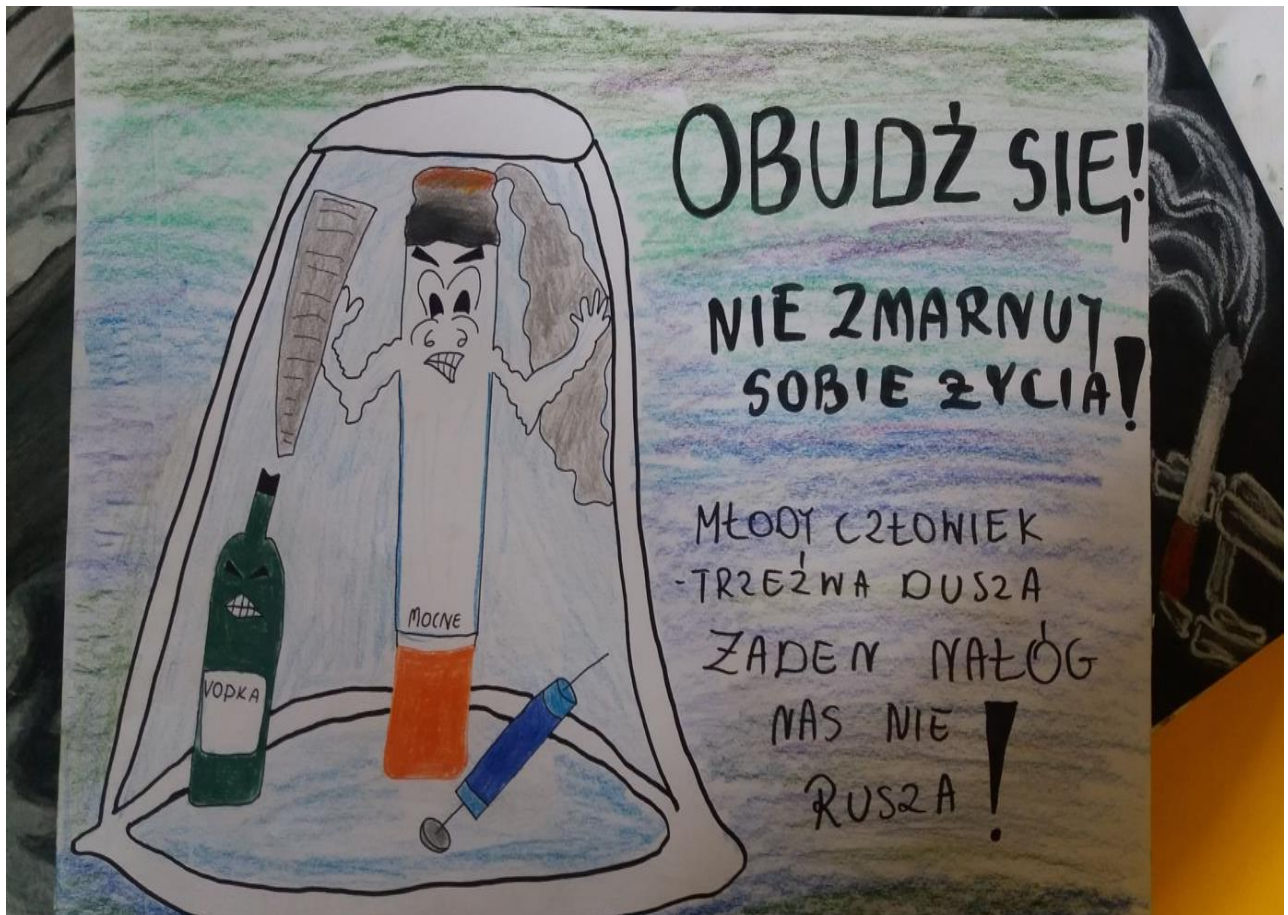 OBUDŹ SIĘ!
NIE ZMARNUJ
SOBIE ŻYCIA!
MŁODY CZŁOWIEK
-TRZEŹWA DUSZA
ŻADEN NAŁÓG
NAS NIE
RUSZA!
MOCNE
VODKA